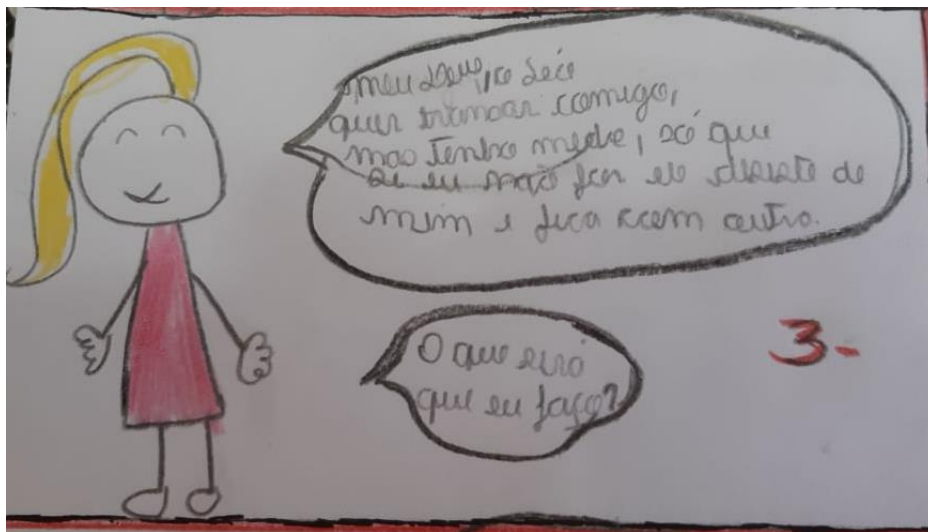 meu Deus, o Léo
quer transar comigo,
mas tenho medo, só que
se eu não for ele desiste de
mim e fica com outra.
O que será
que eu faço?
3-